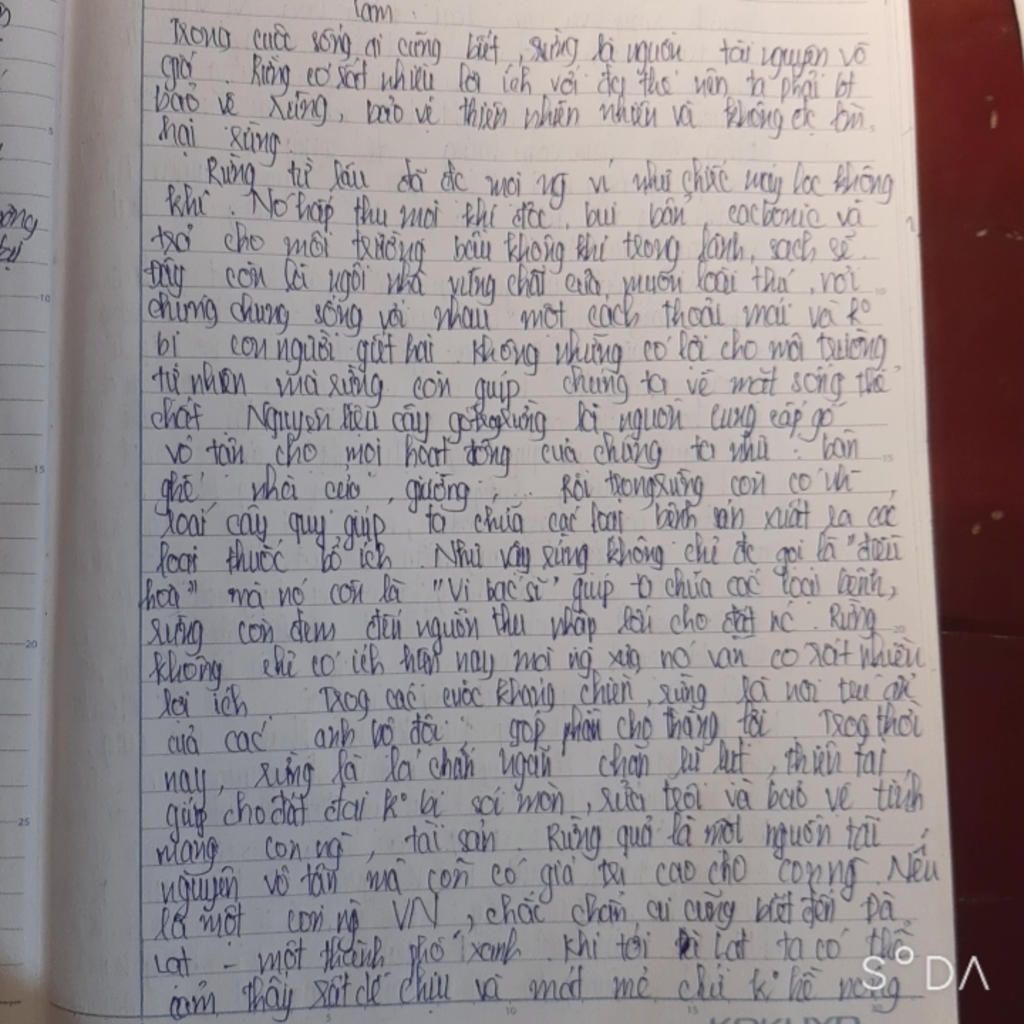 Lam.
Trong cuộc sống ai cũng biết, rừng là nguồn tài nguyên vô
giá. Rừng có rất nhiều lợi ích, với đây thế nên ta phải bt
bảo vệ rừng, bảo vệ thiên nhiên nhiên và không đc tồn
hại rừng.
Rừng từ lâu đã đc mọi ng ví như chiếc máy lọc không
khí. Nó hấp thu mọi khí độc, bụi bẩn, cacbonic và
trả cho môi trường bầu không khí trong lành, sạch sẽ.
Đây còn là ngôi nhà vững chãi của muôn loài thú, nơi
chúng chung sống với nhau một cách thoải mái và ko
bị con người giết hại. Không những có lợi cho môi trường
tự nhiên mà rừng còn giúp chúng ta về mặt sống thể
chất. Nguyên liệu cây gỗ trog rừng là nguồn cung cấp gỗ
vô tận cho mọi hoạt động của chúng ta như: bàn
ghế, nhà cửa, giường,... Rồi trong rừng còn có
loại cây quý giúp ta chữa các loại bệnh sản xuất ra các
loại thuốc bổ ích. Như vậy rừng không chỉ đc gọi là "điều
hoà" mà nó còn là "Vị bác sĩ" giúp ta chữa các loại bệnh,
rừng còn đem đến nguồn thu nhập lớn cho đất nc. Rừng
không chỉ có ích hiện nay mọi ng xưa nó vẫn có rất nhiều
lợi ích. Trog các cuộc kháng chiến, rừng là nơi trú ẩn
của các anh bộ đội góp phần cho thắng lợi. Trog thời
nay, rừng là lá chắn ngăn chặn lũ lụt, thiên tai,
giúp cho đất đai ko bị sói mòn, rửa trôi và bảo vệ tính
mạng con ng, tài sản. Rừng quả là một nguồn tài
nguyên vô tận mà còn có giá trị cao cho con ng. Nếu
là một con ng VN, chắc chắn ai cũng biết đến Đà
Lạt - một thành phố xanh. Khi tới Lạt ta có thể
cảm thấy rất dễ chịu và mát mẻ chứ k hề nóng
SODA
KOKUYO